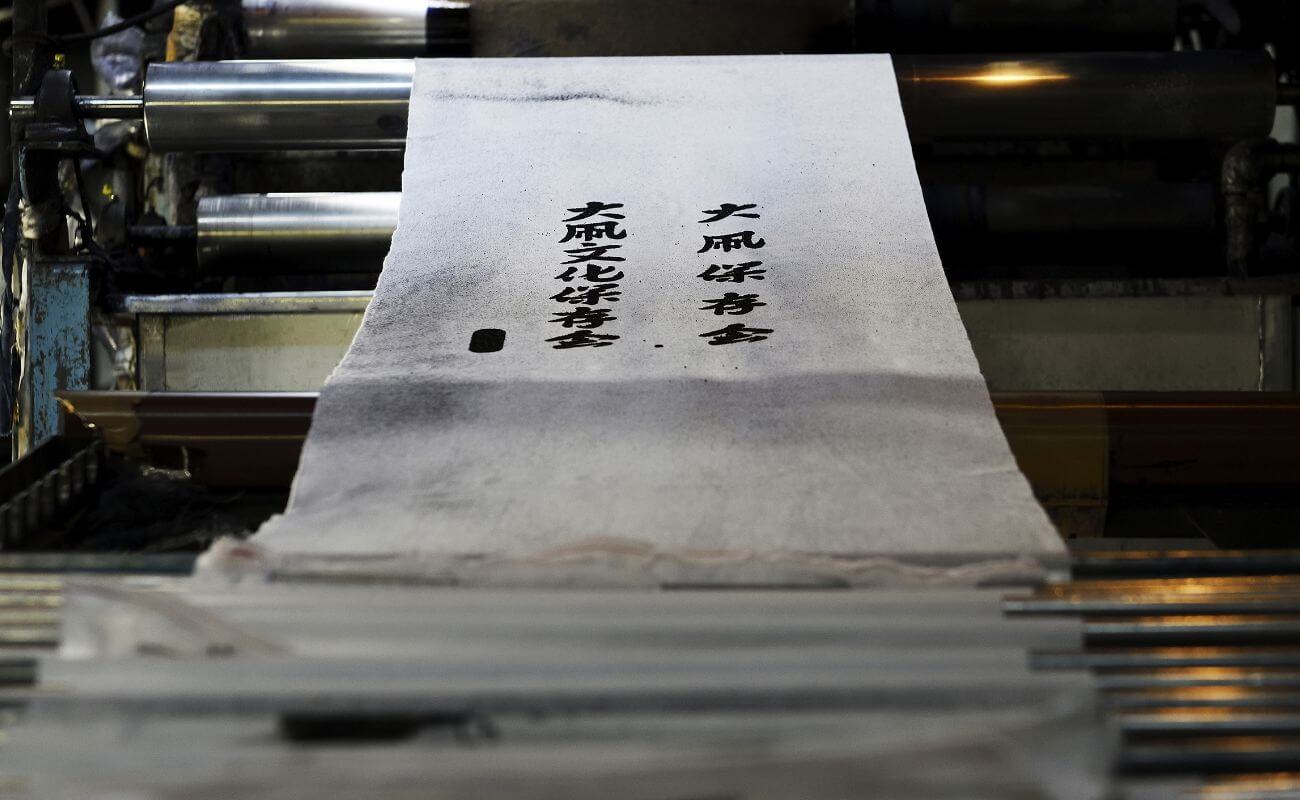 大凧保存会
大凧文化保存会